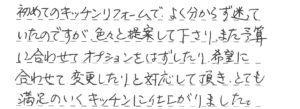 初めてのキッチンリフォームで よく分からず迷って
いたのですが、色々と提案して下さり、また予算
に合わせてオプションをはずしたり、希望に
合わせて変更したりと対応して頂き、とても
満足のいくキッチンに仕上がりました。